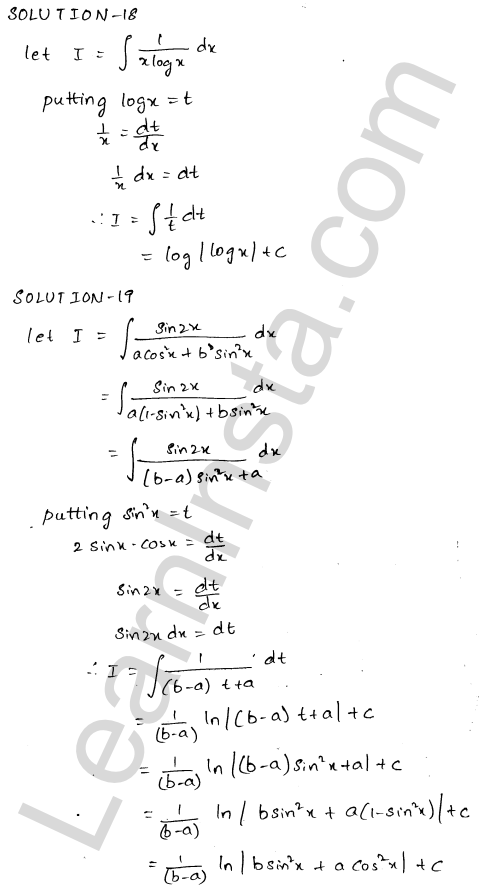 SOLUTION-18
let I = ∫ 1/(x log x) dx
putting log x = t
1/x = dt/dx
1/x dx = dt
∴ I = ∫ 1/t dt
= log |log x| + c
SOLUTION-19
let I = ∫ sin2x/(a cos²x + b² sin²x) dx
= ∫ sin2x/(a(1-sin²x) + b sin²x) dx
= ∫ sin2x/((b-a) sin²x + a) dx
putting sin²x = t
2 sinx · cosx = dt/dx
sin2x = dt/dx
sin2x dx = dt
∴ I = ∫ 1/((b-a) t+a) dt
= 1/(b-a) ln |(b-a) t+a| + c
= 1/(b-a) ln |(b-a) sin²x+a| + c
= 1/(b-a) ln | b sin²x + a(1-sin²x)| + c
= 1/(b-a) ln | b sin²x + a cos²x| + c
LearnInsta.com